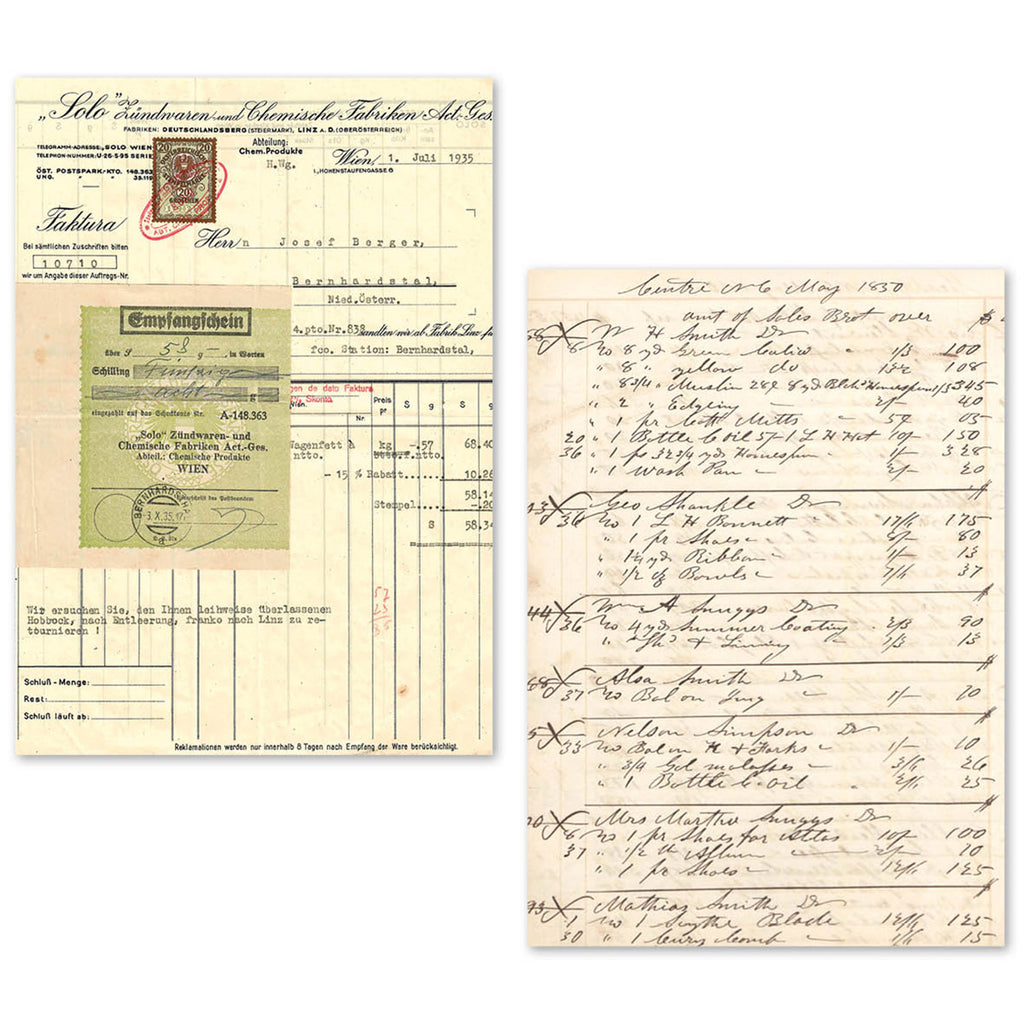 „Solo" Zündwaren- und Chemische Fabriken Act.-Ges.
FABRIKEN: DEUTSCHLANDSBERG (STEIERMARK), LINZ A. D. (OBERÖSTERREICH)
TELEGRAMM-ADRESSE „SOLO WIEN
TELEPHON-NUMMER: U-26-5-95 SERIE
ÖST. POSTSPARK/KTO. 148.363
UNG. " " 35.119
Abteilung:
Chem. Produkte
H.Wg.
Wien, 1. Juli 1935
I., HOHENSTAUFENGASSE 6
20 20
20
GROSCHEN
Faktura
Bei sämtlichen Zuschriften bitten
10710
wir um Angabe dieser Auftrags-Nr.
Herrn Josef Berger,
Bernhardstal,
Nied.Österr.
4.pto.Nr.838 sandten wir ab Fabrik Linz
fco. Station: Bernhardstal,
Empfangschein
über S 58 g -, in Worten
Schilling Fünfzig
acht g
eingezahlt auf das Scheckkonto Nr. A-148.363
„Solo" Zündwaren- und
Chemische Fabriken Act.-Ges.
Abteil.: Chemische Produkte
WIEN
Unterschrift des Postbeamten
BERNHARDSTHAL
-3.X.35.17
gen de dato Faktura
% Skonto
Nr
Preis
pr
S g S g
Wagenfett à kg -.57 68.40
ntto. ntto.
- 15 % Rabatt.... 10.26
58.14
Stempel.... -.20
S 58.34
57
Wir ersuchen Sie, den Ihnen leihweise überlassenen
Hobbock, nach Entleerung, franko nach Linz zu re-
tournieren !
Schluß - Menge:
Rest:
Schluß läuft ab:
Reklamationen werden nur innerhalb 8 Tagen nach Empfang der Ware berücksichtigt.
Centre N C May 1850
amt of Sales Brot over $
68 W H Smith Dr
8 To 8 yd Green Calico 1/3 100
" 8 " yellow do 108
" 8 3/4 " Muslin 28¢ 8 yd Homespun 1/3 345
" 2 " Edgeing 2/- 40
" 1 pr Cott Mitts 5¢ 05
20 " 1 Bottle C Oil 1 L H Hat 10/- 150
36 " 1 ps 32 3/4 yds Homespun 328
" 1 Wash Pan 2/- 20
13 Geo Shankle Dr
36 To 1 L H Bonnett 17/6 175
" 1 pr Shoes 8/- 80
" Ribbon 1/- 13
" 1/2 Bowls 37
44 Wm A Suggs Dr
36 To 4 yd Summer Coating 2/3 90
" & 1/3 13
68 Smith Dr
37 To Bal on 1/- 20
5 Nelson Simpson Dr
33 To Bal on K & Forks 1/- 10
" 3/4 Gal molasses 3/6 26
" 1 Bottle C Oil 2/6 25
20 Mrs Martha Suggs Dr
6 To 1 pr Shoes for 10/- 100
37 " 1/2 Allum 2/- 10
" 1 pr Shoes 12/6 125
73 Mathias Smith Dr
1 To 1 Scythe Blade 12/6 125
30 " 1 Curry Comb 1/6 15